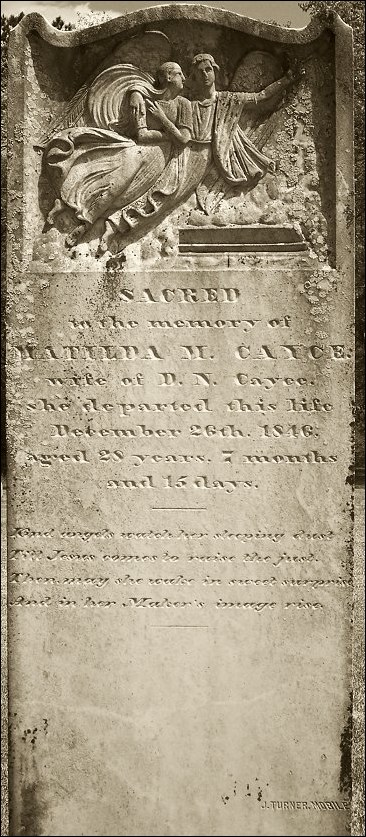 SACRED
to the memory of
MATILDA M. CAYCE.
wife of D. N. Cayce.
she departed this life
December 26th. 1846.
aged 28 years. 7 months
and 15 days.
Kind angels watch her sleeping dust
Till Jesus comes to raise the just.
Then may she wake in sweet surprise
And in her Maker's image rise.
J. TURNER. MOBILE